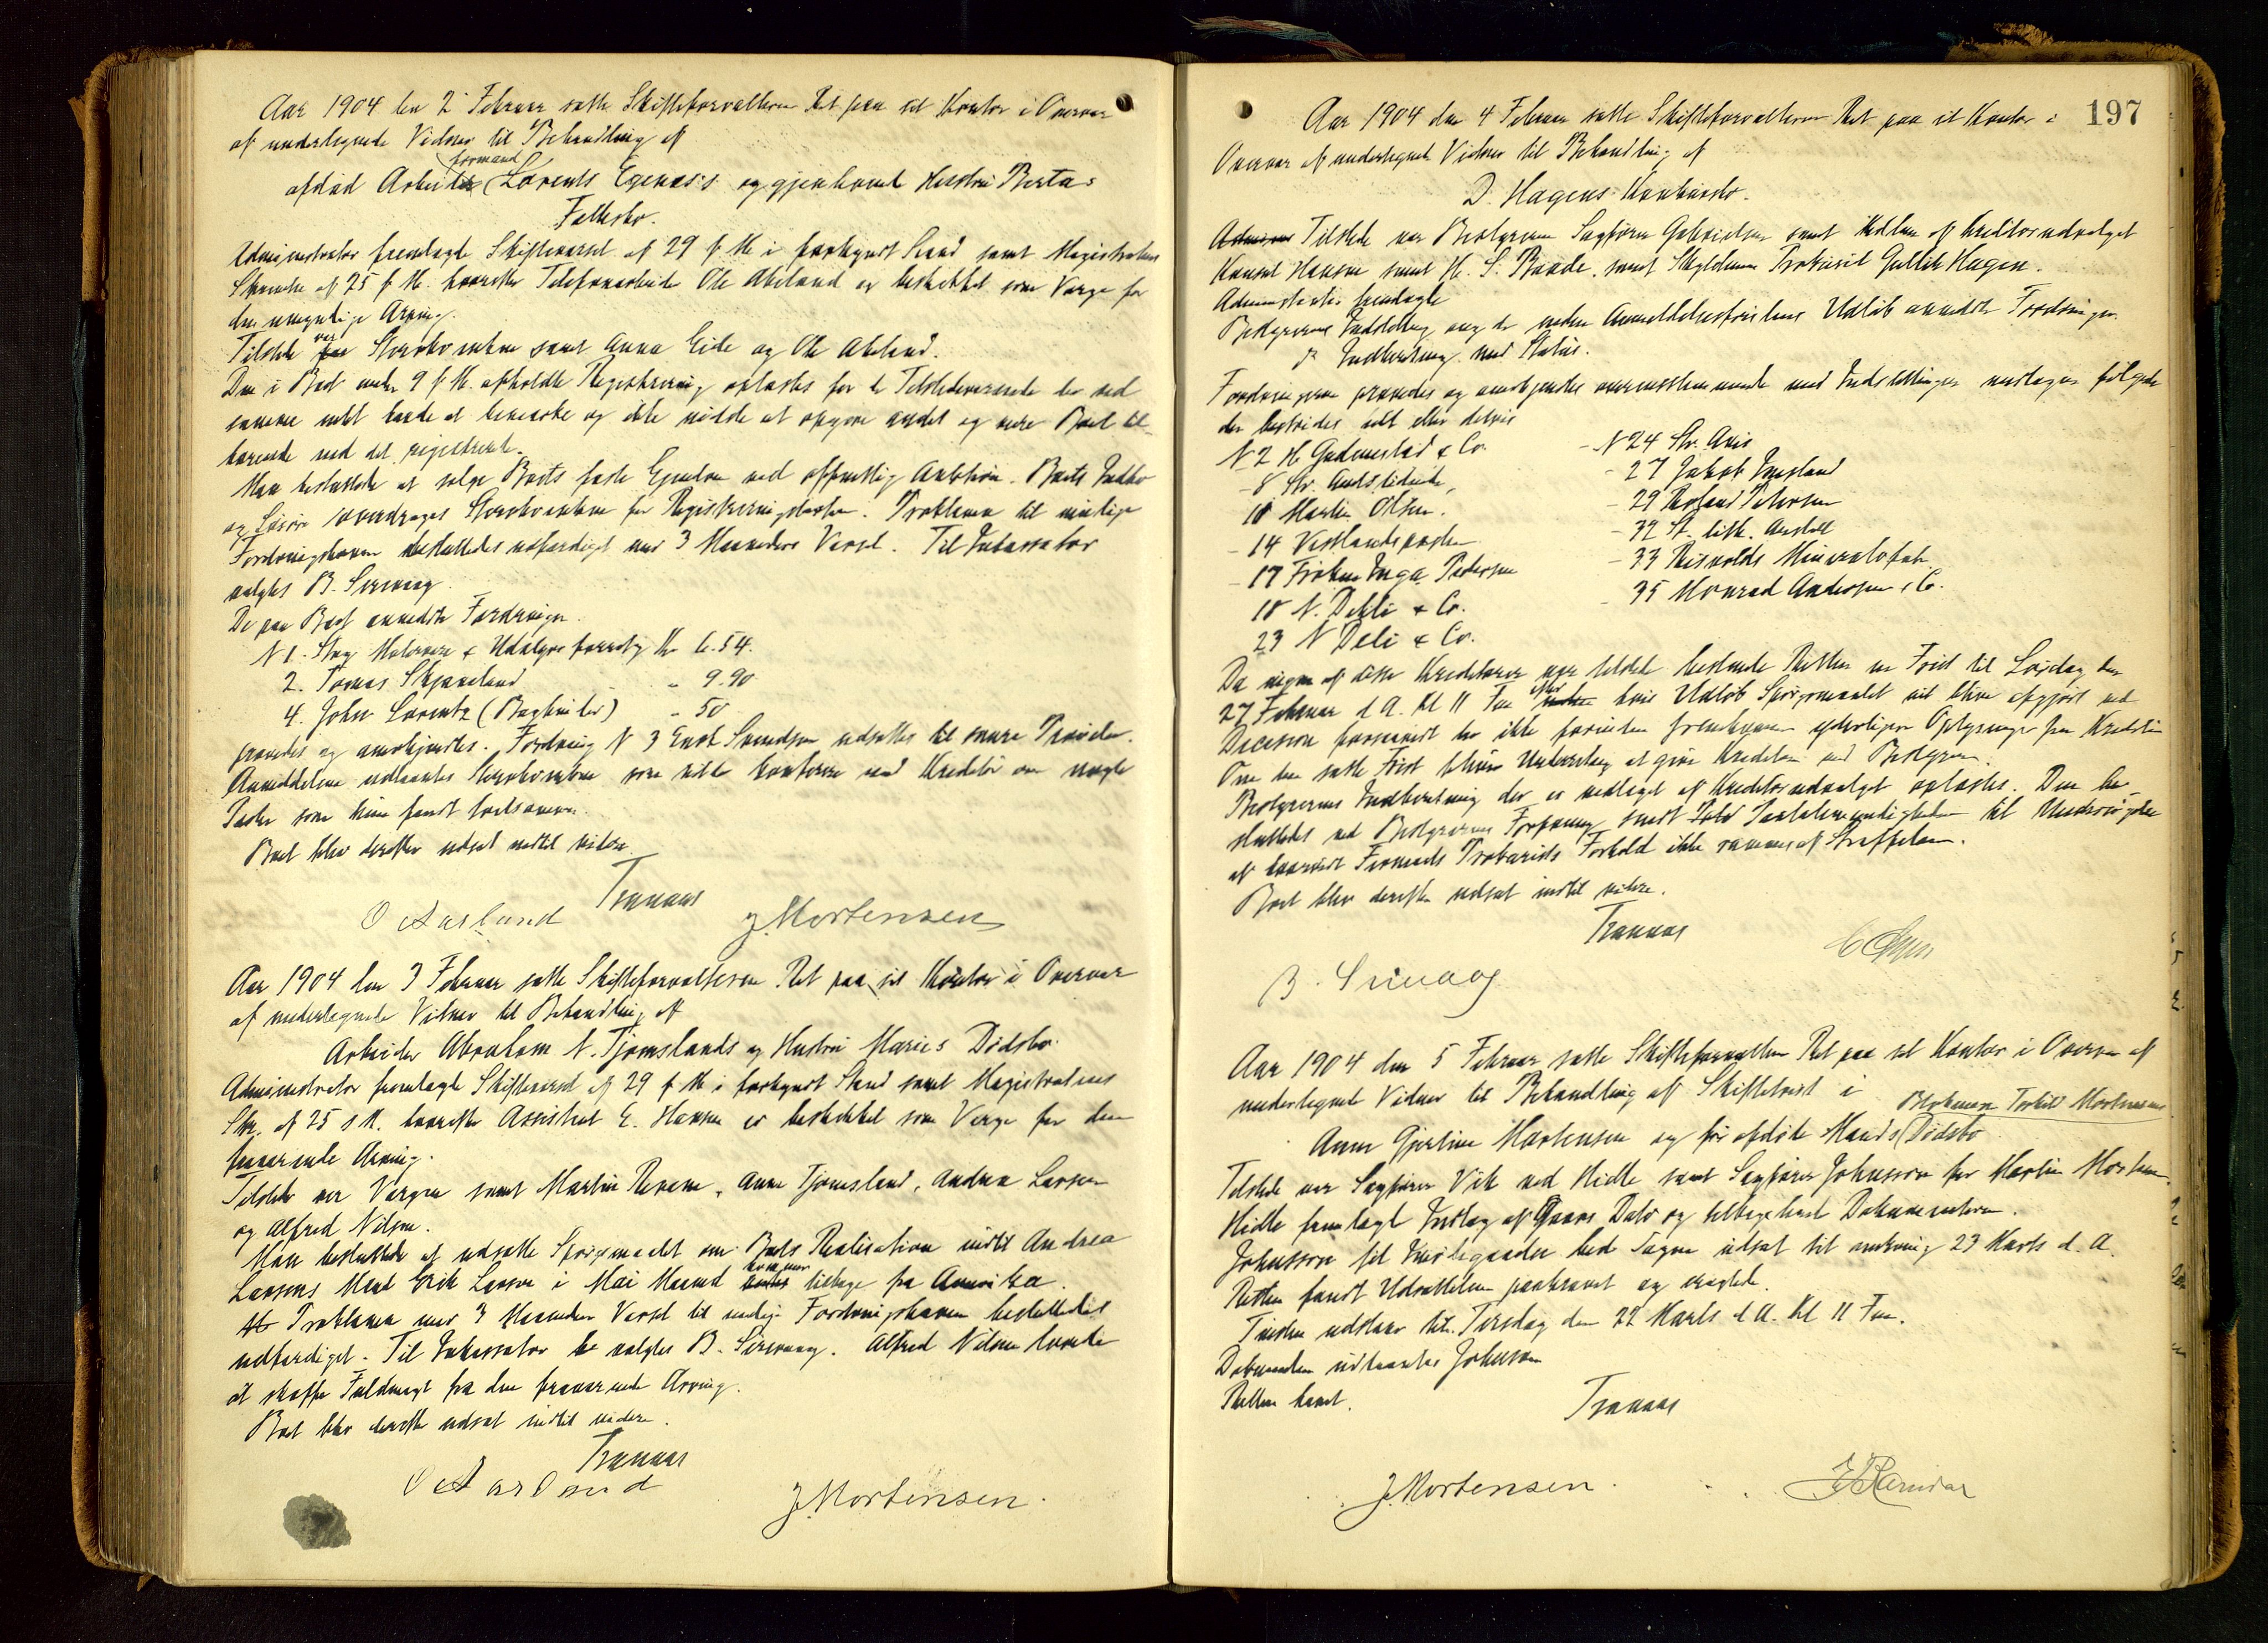 Aar 1904 den 2 Februar satte Skifteforvalteren Ret paa sit Kontor i Overvær
af undertegnede Vidner til Behandling af
formand
afdød Arbeids Lorents Egenæs's og gjenlevende Hustru Berta's
Fællesbo.
Administrator fremlagde Skiftevarsel af 29 f. M. i forkyndt Stand samt Magistratens
Skrivelse af 25 f. M. hvorefter Telefonarbeider Ole Abeland er beskikket som Værge for
den umyndige Arving.
Tilstede var Storebo enken samt Anna Eide og Ole Abeland.
Den i Boet under 9 f. M. afholdte Registrering oplæstes for de Tilstedeværende der ved
samme intet havde at bemærke og ikke vidste at opgive andet og mere Boet til-
hørende end det registrerte.
Man besluttede at sælge Boets faste Eiendom ved offentlig Auktion. Boets Indbo
og Løsøre overdrages for Registreringstaksten. Proklama til mulige
Fordringshavere besluttedes udfærdiget med 3 Maaneders Varsel. Til Inkassator
valgtes B. Sirevaag.
De paa Boet anmeldte Fordringer
N 1. Stav. Malervare & Udsalgsforretg Kr 6.54.
2. Tomas Skjæveland " 9.90
4. John Lorentz (Bagkniler) " 50
prøvedes og anerkjendtes. Fordring N 3 Enok Svendsen udsættes til senere Prøvelse.
Anmeldelserne udlaantes som vilde konferere med Kreditor om nogle
Poster som hun fandt tvilsomme.
Boet blev derefter udsat indtil videre.
Tranaas
O Aarsland J. Mortensen
Aar 1904 den 3 Februar satte Skifteforvalteren Ret paa sit Kontor i Overvær
af undertegnede Vidner til Behandling af
Arbeider Abraham N. Tjomslands og Hustru Maries Dødsbo.
Administrator fremlagde Skiftevarsel af 29 f. M. i forkyndt Stand samt Magistratens
Skr. af 25 s. M. hvorefter Assistent E. Hansen er beskikket som Værge for den
fraværende Arving.
Tilstede var Værgen samt Martin Revem, Anne Tjomsland, Andrea Larsen
og Alfred Nilsen.
Man besluttede at udsætte Spørgsmaalet om Boets Realisation indtil Andrea
Larsens Mand Erik Larsen i Mai Maaned kommer tilbage fra Amerika.
Proklama med 3 Maaneders Varsel til mulige Fordringshavere besluttedes
udfærdiget. Til Inkassator valgtes B. Sirevaag. Alfred Nilsen lovede
at skaffe Fuldmagt fra den fraværende Arving.
Boet blev derefter udsat indtil videre.
Tranaas
O Aarsland
J. Mortensen.
197
Aar 1904 den 4 Februar satte Skifteforvalteren Ret paa sit Kontor i
Overvær af undertegnede Vidner til Behandling af
D. Hagens Konkursbo.
Tilstede var Bestyreren Sagfører Gabrielsen samt Medlem af Kreditorudvalget
Konsul Hansen samt H. S. Baade, samt Skyldneren Prokurist Gullik Hagen.
Administrator fremlagde
Bestyrerens Indstilling ang de inden Anmeldelsesfristens Udløb anmeldte Fordringer
Indberetning med Status.
Fordringerne prøvedes og anerkjendtes overensstemmende med Indstillingen undtagen følgende
der bestrides helt eller delvis
N 2 H Gudmestad & Co. - N 24 Stv. Avis
- 8 Stv. Amtstidende, - 27 Jakob Ims­land
10 Martin Olsen. - 29 Roland Petersen
- 14 Vestlandsposten - 32 St. lith. Anstalt
- 17 Frøken Inga Pedersen - 33 Risvolds Mineralvfabr.
18 N. Dehli & Co. - 35 Monrad Andersen & Co.
23 N Deli & Co.
Da ingen af disse Kreditorer var tilstede bestemte Retten en Frist til Lørdag den
27 Februar d. A. Kl 11 Fm efter hvis Udløb Spørgsmaalet vil blive afgjort ved
Decision forsaavidt der ikke forinden fremkommer yderligere Oplysninger fra Kreditor
Om den satte Frist bliver Underretning at give Kreditor ved Bestyreren.
Bestyrerens Indberetning der er vedtaget af Kreditorudvalget oplæstes. Den be-
sluttedes ved Bestyrerens Forføining sendt Paatalemyndigheden til Undersøgelse
af hvorvidt Firmaets Prokurists Forhold ikke rammes af Straffeloven.
Boet blev derefter udsat indtil videre.
Tranaas
B. Sirevaag
Aar 1904 den 5 Februar satte Skifteforvalteren Ret paa sit Kontor i Overvær af
undertegnede Vidner til Behandling af Skiftetvist i
Torkil Mortensens
Anne Gjertine Mortensen og før afdøde Mands Dødsbo
Tilstede var Sagfører Vik ved Hidle samt Sagfører Johnsson for Martin Mortensen.
Hidle fremlagde Indlæg af Gaars Dato og tilbageleverte Dokumenterne.
Johnsson til Imødegaaelse bad Sagen udsat til omkring 23 Marts d. A.
Retten fandt Udsættelsen paakrævet og eragtede.
Tvisten udstaar til Tirsdag den 22 Marts d A. Kl 11 Fm.
Dokumenterne udlaantes Johnsson
Retten hævet.
Tranaas
J. Mortensen.